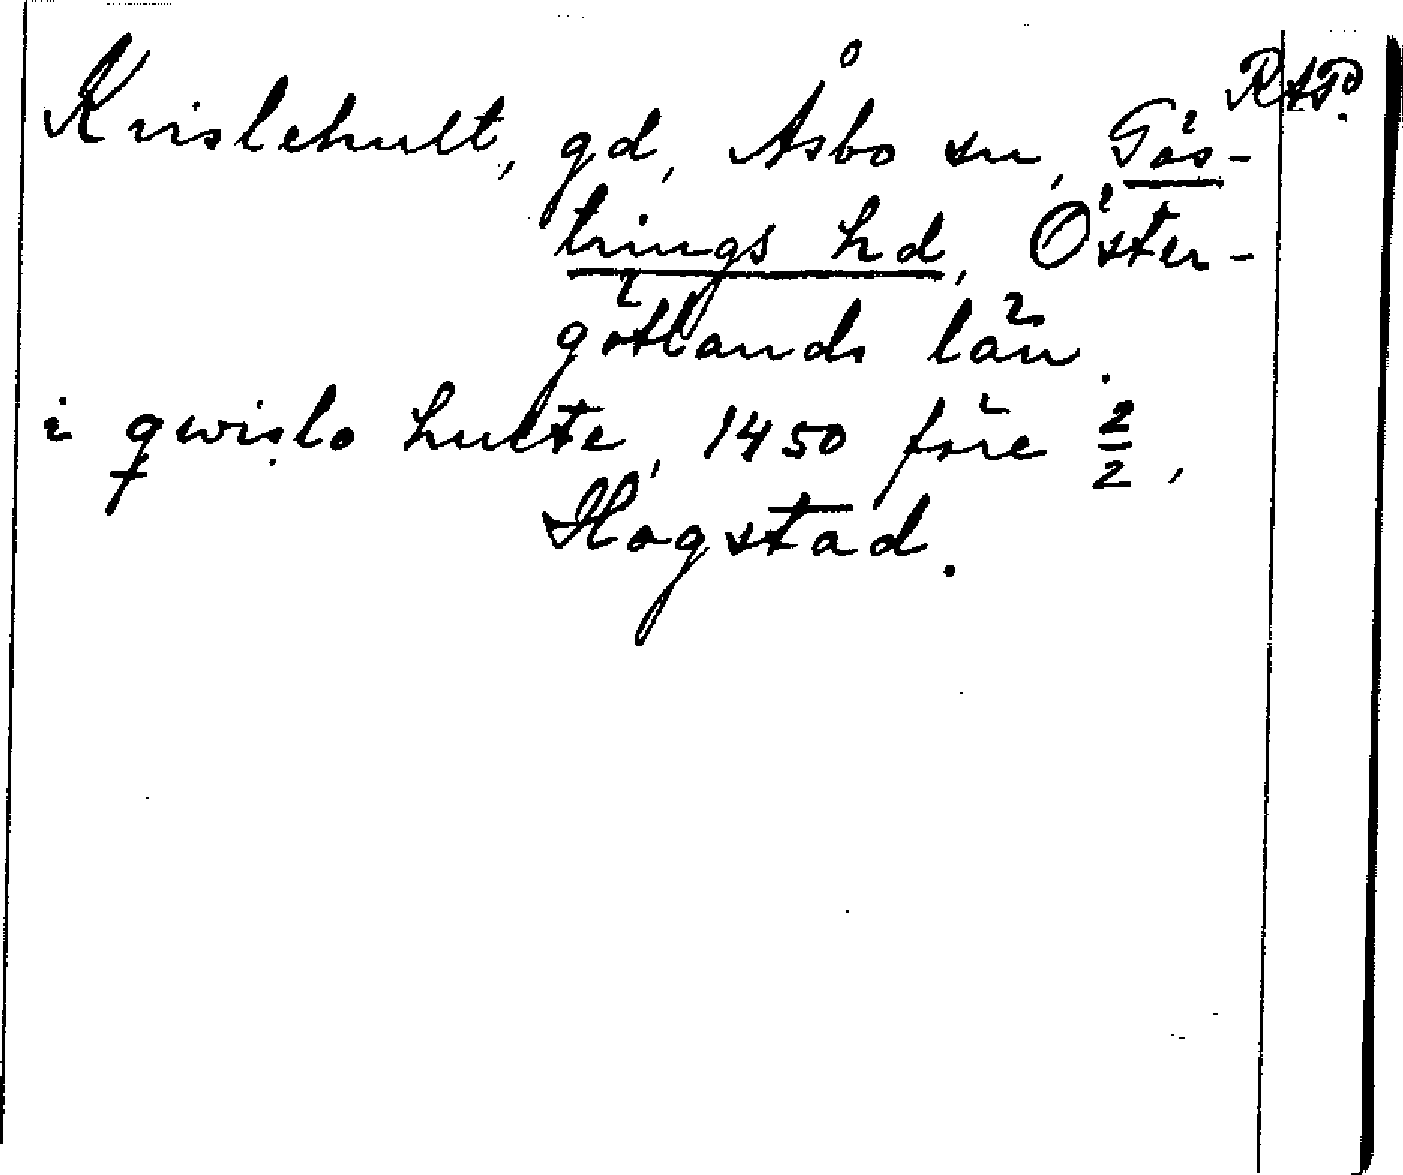 RAP.
Kvislehult, gd, Åsbo sn, Gös-
trings hd, Öster-
götlands län.
i qwislo hulte, 1450 före 2/2,
Hogstad.